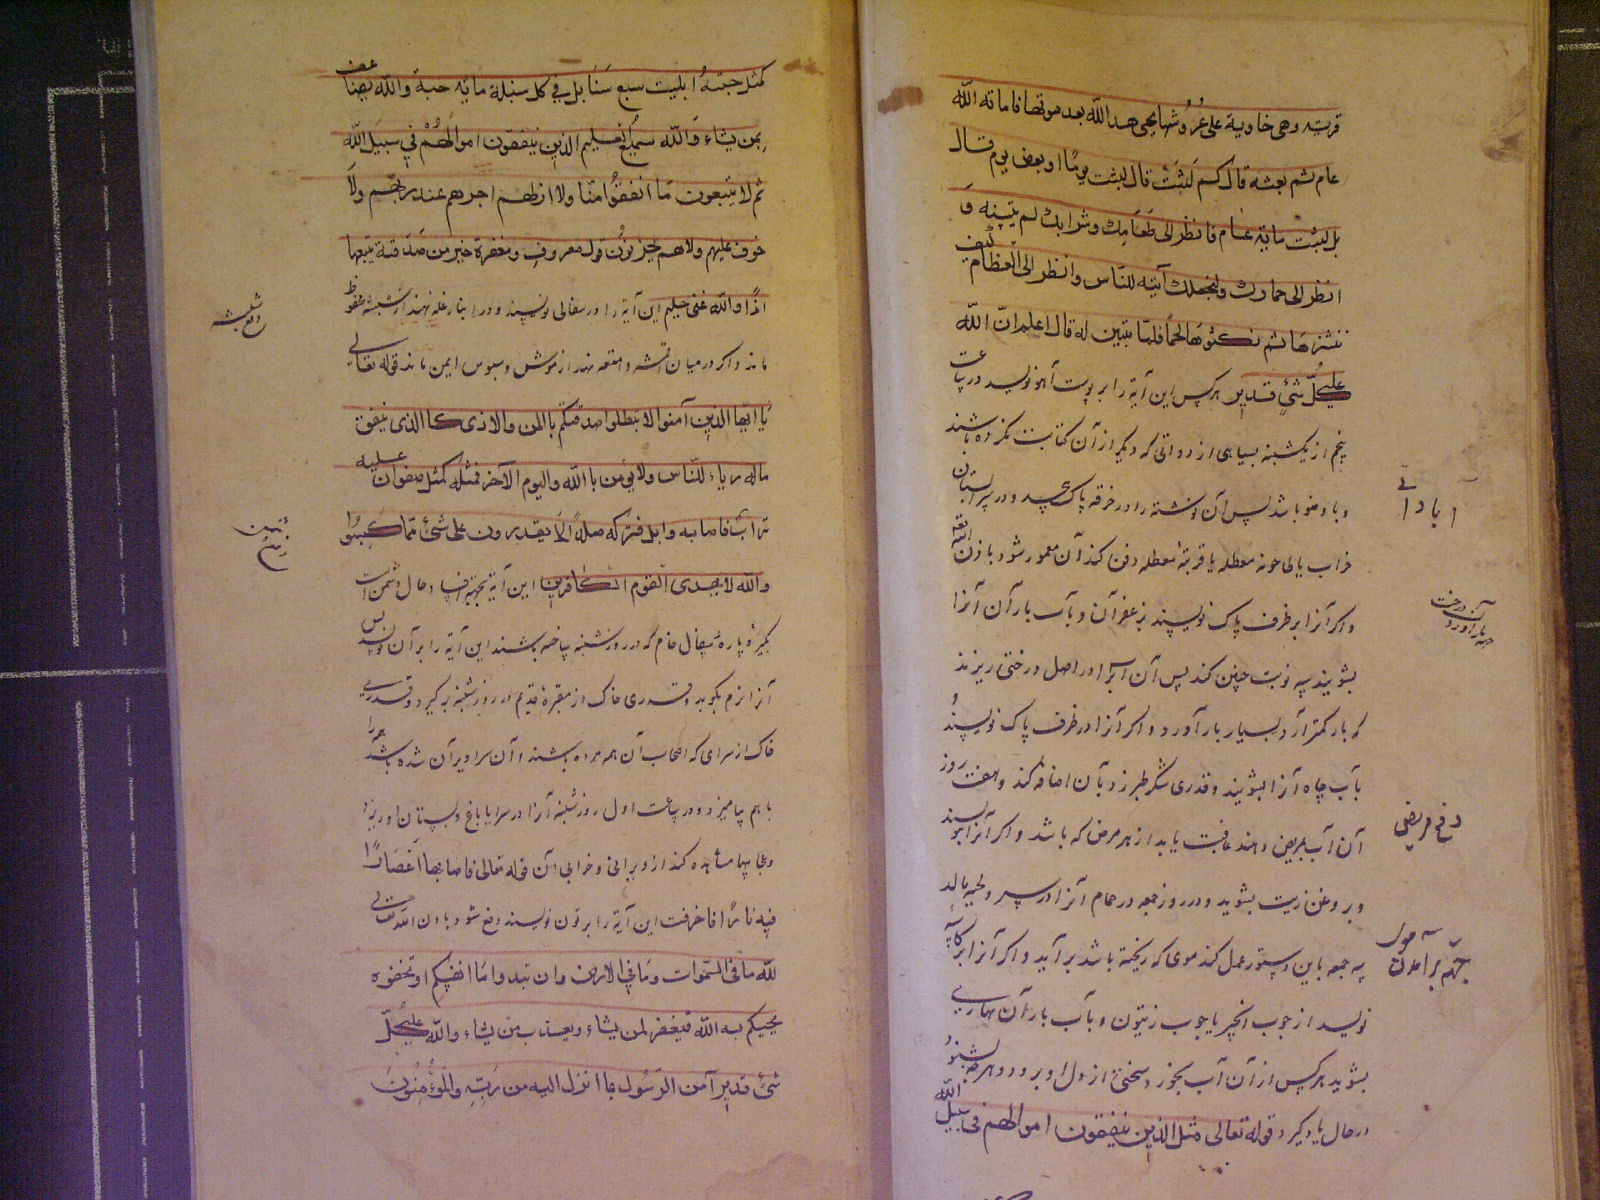 قریه وهی خاویة علی عُرُوشها یحیی هـذ الله بعد موتها فاماته الله
عام ثم بعثه قال کم لَبِثَتَ قال لبثت یومًا او بعض یوم قال
بل لبثت مایة عام فانظر الی طَعَامِك وشرابك لم یتسنه وَ
انظر الی حمارك ولنجعلك آیته للناس وانظر الی العظام کَیفَ
ننشزها ثم نکثوها لحماً فلمّا تبین له قال اعلم انّ الله
علی کلّ شیٔ قدیر هر کس این آیة را بر پوست آهو نویسد در ساعت
پنجم از یکشنبه بسیاهی از دواتی که دیگر از آن کتابت نکرده باشند
و با وضو باشد پس آن نوشته را در خرقه پاک و در بستان
خراب یا طاحونه معطله یا قریهٔ معطله دفن کند آن معمور شود باذن الله
آبادانی
و اگر آنرا بر ظرف پاک نویسند بزعفران و بآب باران آنرا
بشویند سه نوبت چنین کند پس آن آب را در اصل درختی ریزند
که بار کمتر آرد بسیار بار آورد و اگر آنرا در ظرف پاک نویسند
بآب چاه آنرا بشویند و قدری شکر طبرزد بآن اضافه کند و هفت روز
آن آب بمریض دهند عافیت یابد از هر مرض که باشد و اگر آنرا نویسند
دفع مریضی
و بروغن زیت بشوید و در روز جمعه در حمام آنرا در سر و لحیه مالد
سه جمعه باین دستور عمل کند موی که ریخته باشد بر آید و اگر آنرا بر
جهة بر آمدن موی
نویسد از چوب انجیر یا چوب زیتون و بآب باران بهاری
بشوید هر کس از آن آب بخورد سختی از دل او برود و هر چه بشنود
در حال یاد گیرد قوله تعالی مثل الذین ینفقون اموالهم فی سبیل الله
کمثل حبتهٔ انبتت سبع سَنَابل فی کل سنبلة مایه حبة والله یضاعف
لمن یشاء والله سمیع علیم الذین ینفقون اموالَهُمْ فی سبیل الله
ثم لا یتبعون مّا انفقوُا منّا ولا اذی لهم اجرهم عند ربهم ولَا
خوف علیهم ولا هم یحزنون قول معروف ومغفرة خیر من صدقة یتبعها
اذًا والله غنی حلیم این آیة را در سفالی نویسند و در انبار غله نهند از شبشه محفوظ
دفع شبشه
ماند و اگر در میان اقمشه و امتعه نهند از موش و سوس ایمن ماند قوله تعالی
یا ایّها الذین آمنوا لا تبطلوا صدقتکم باالمن والاذی کاالذی ینفق
ماله ریاء للنّاس ولا یؤمن باالله والیوم الآخر فمثله کمثل صفوان علیه
تراب فاصابه وابل فترکه صلدًا لا یقدرون علی شیٔ مّما کَسَبُوا
والله لا یهدی القوم الکافرین این آیة بجهة افساد حال دشمن است
بگیرد پاره سفال خام که در روز شنبه ساخته باشند این آیة را بر آن نویسد پس
آنرا نرم بکوبد و قدری خاک از مقبرهٔ قدیم در روز شنبه بر گیرد و قدری
خاک از سرای که اصحاب آن همه مرده باشند و آن سرا ویران شده باشد همه را
با هم بیامیزد و در ساعت اول روز شنبه آنرا در سرا یا باغ و بستان او ریزد
و عجایبها مشاهده کند از ویرانی و خرابی آن قوله تعالی فاصابها اعصار
فیه نارًا فاحترقت این آیة را بر تون نویسند دفع شود باذن الله تعالی
لله ما فی السّموات وما فی الارض وان تبدوا مَا انفسکم او تخفوه
یحسبکم به الله فیغفر لمن یشاء ویعذب من یشاء والله علی کُلّ
شیٔ قدیر آمن الرّسُول بما انزل الیه من ربّه والمؤمنُونَ